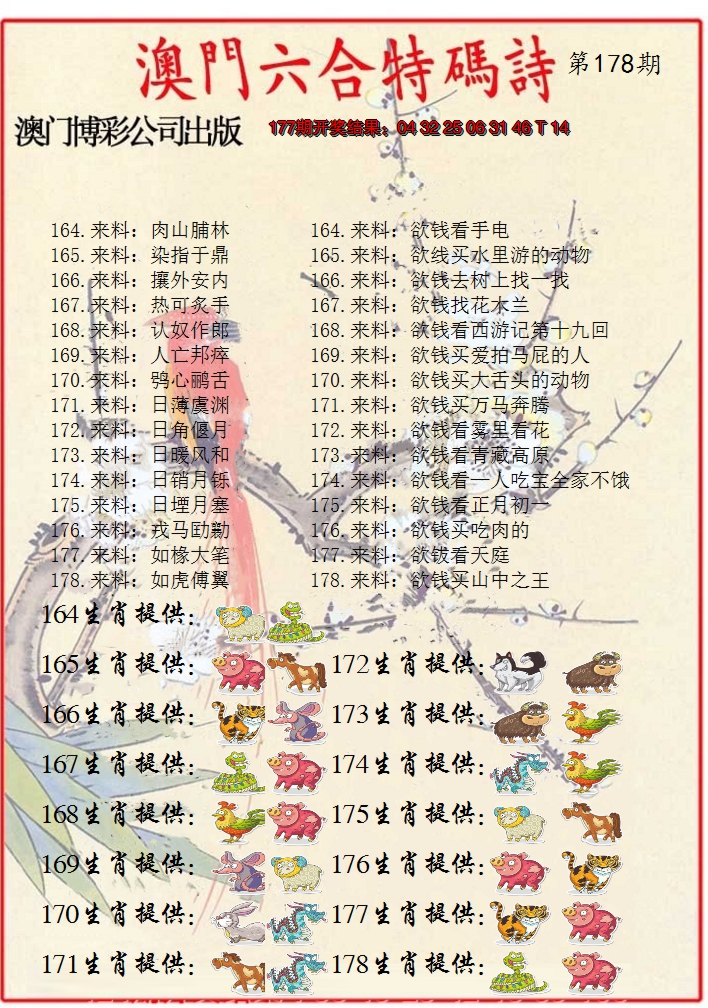 澳門六合特碼詩 第178期
澳门博彩公司出版 177期开奖结果：04 32 25 06 31 46 T 14
164.来料：肉山脯林 164.来料：欲钱看手电
165.来料：染指于鼎 165.来料：欲线买水里游的动物
166.来料：攘外安内 166.来料：欲钱去树上找一找
167.来料：热可炙手 167.来料：欲钱找花木兰
168.来料：认奴作郎 168.来料：欲钱看西游记第十九回
169.来料：人亡邦瘁 169.来料：欲钱买爱拍马屁的人
170.来料：鸮心鹂舌 170.来料：欲钱买大舌头的动物
171.来料：日薄虞渊 171.来料：欲钱买万马奔腾
172.来料：日角偃月 172.来料：欲钱看雾里看花
173.来料：日暖风和 173.来料：欲钱看青藏高原
174.来料：日销月铄 174.来料：欲钱看一人吃宝全家不饿
175.来料：日堙月塞 175.来料：欲钱看正月初一
176.来料：戎马劻勷 176.来料：欲钱买吃肉的
177.来料：如椽大笔 177.来料：欲钹看天庭
178.来料：如虎傅翼 178.来料：欲钱买山中之王
164生肖提供：
165生肖提供： 172生肖提供：
166生肖提供： 173生肖提供：
167生肖提供： 174生肖提供：
168生肖提供： 175生肖提供：
169生肖提供： 176生肖提供：
170生肖提供： 177生肖提供：
171生肖提供： 178生肖提供：